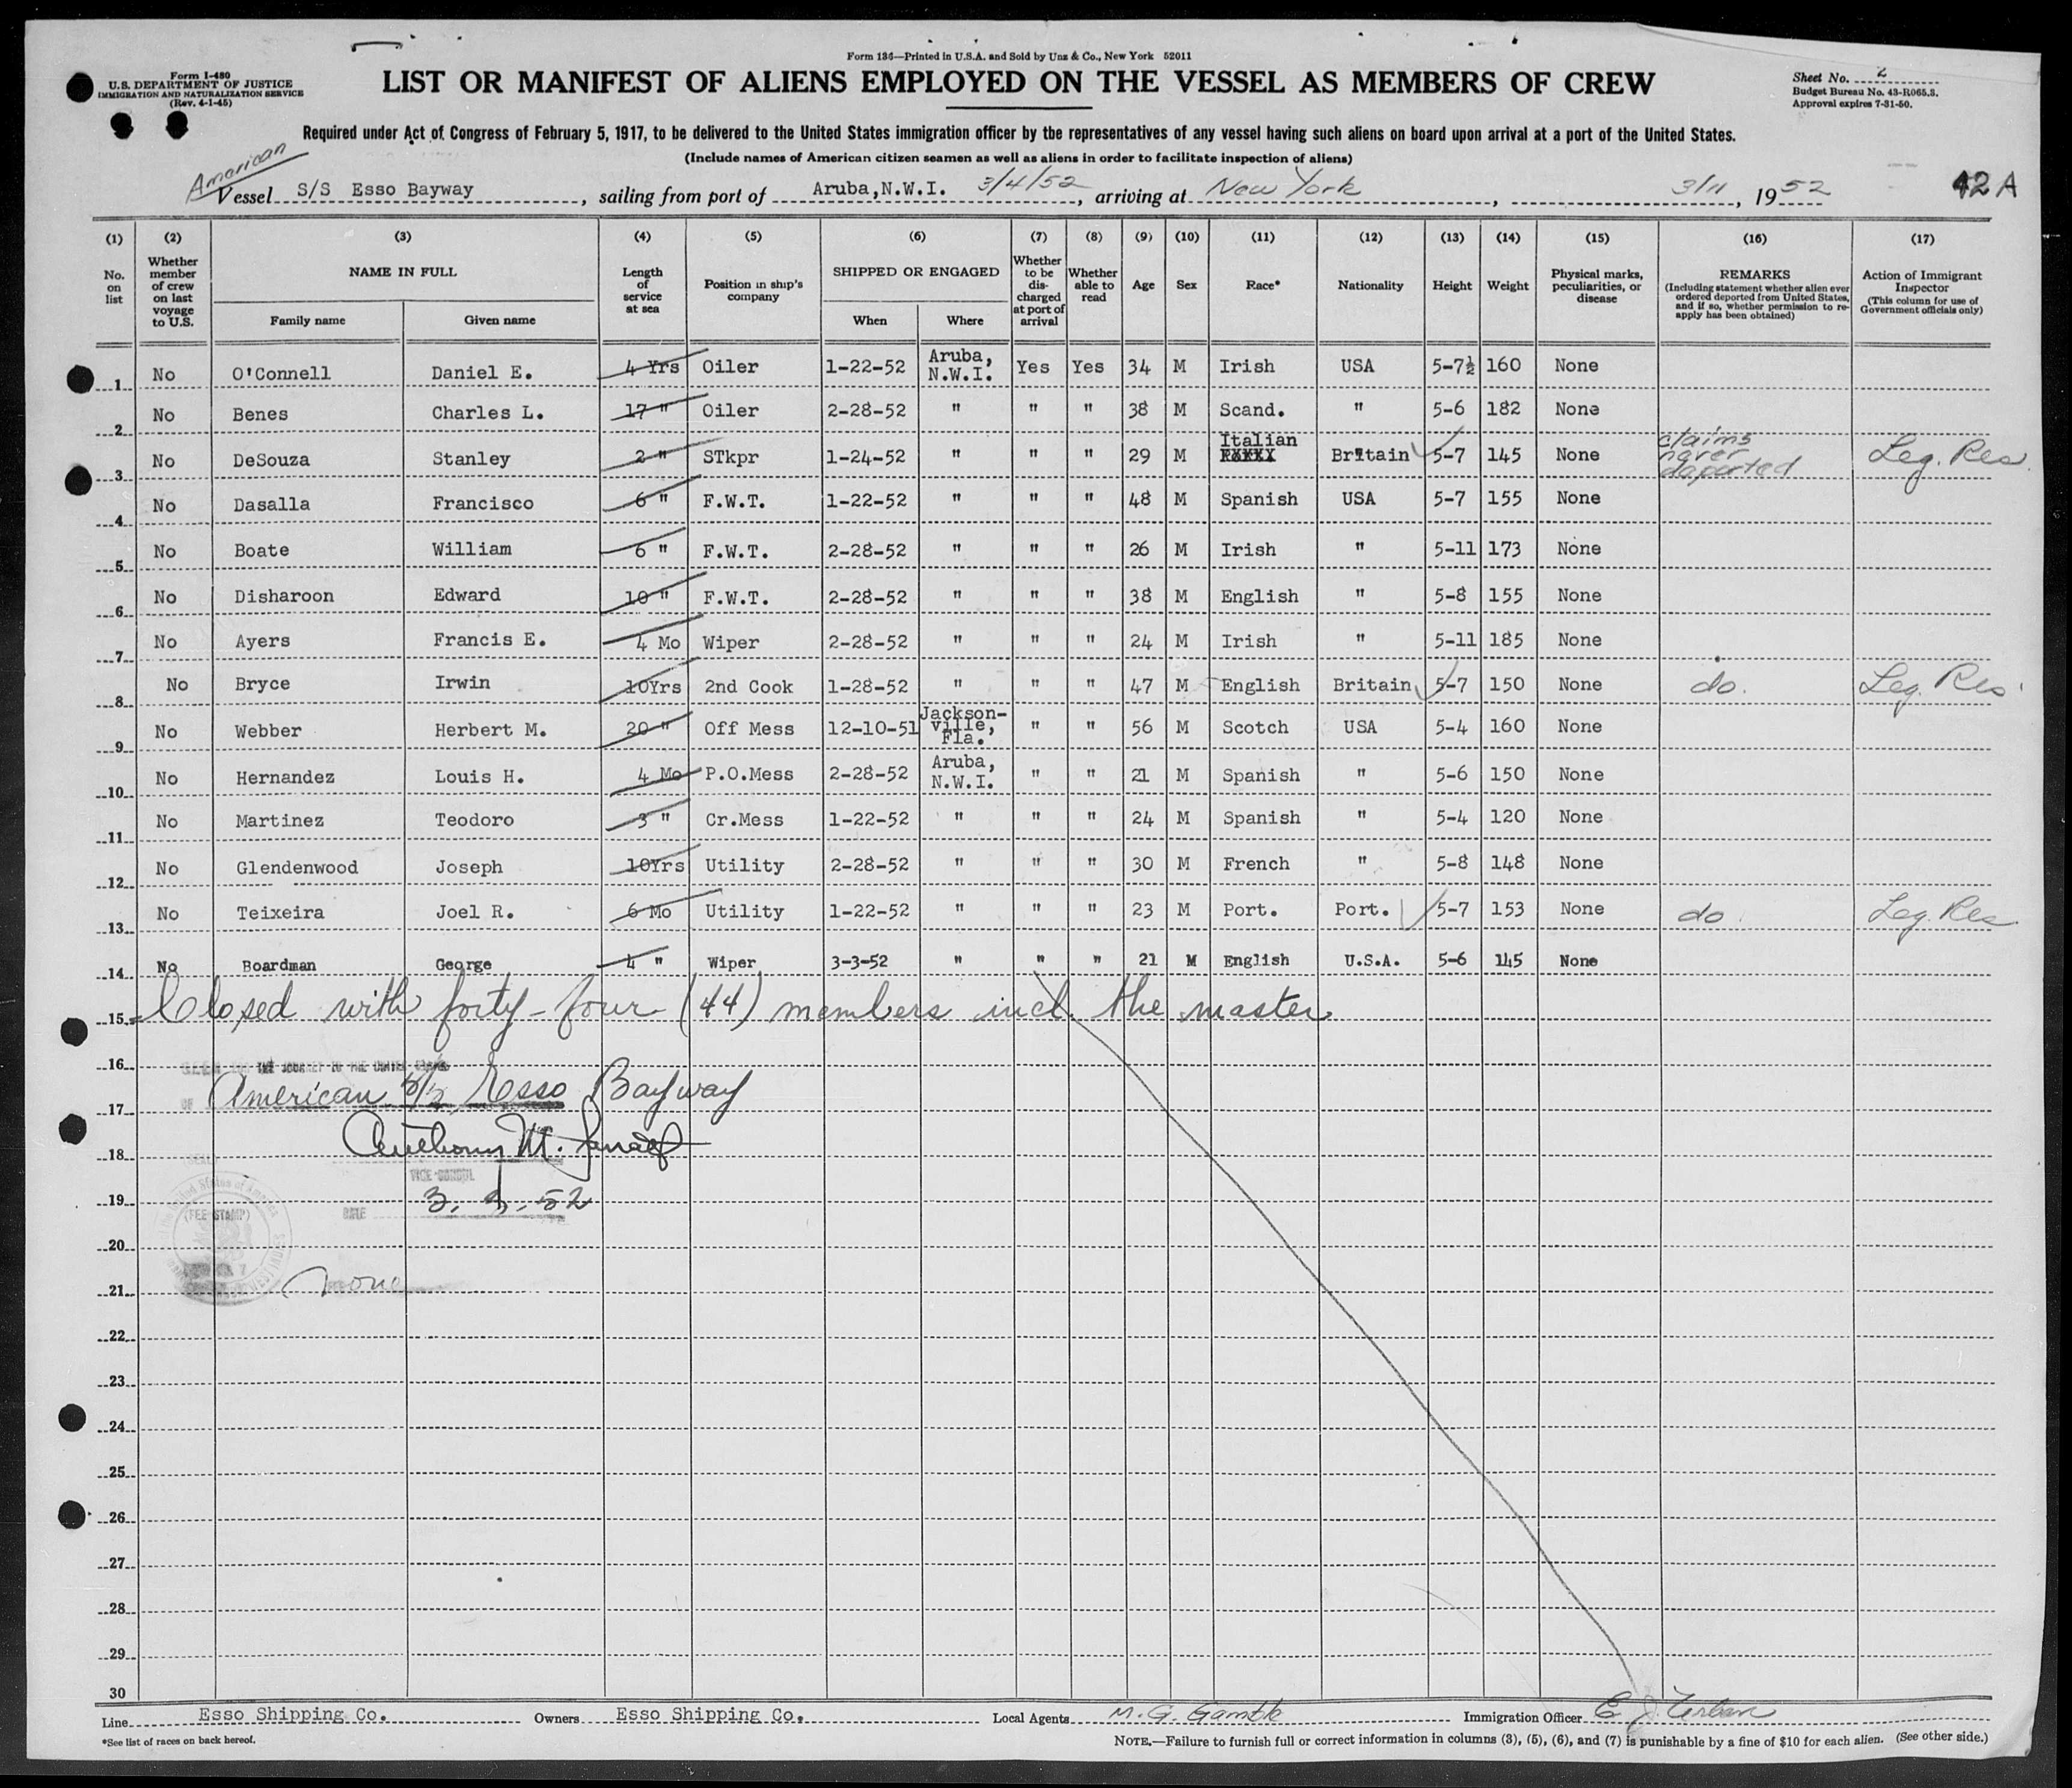 Form 136—Printed in U.S.A. and Sold by Unz & Co., New York 52011
Form I-480
U.S. DEPARTMENT OF JUSTICE
IMMIGRATION AND NATURALIZATION SERVICE
(Rev. 4-1-45)
LIST OR MANIFEST OF ALIENS EMPLOYED ON THE VESSEL AS MEMBERS OF CREW
Sheet No. 2
Budget Bureau No. 43-R065.3.
Approval expires 7-31-50.
Required under Act of Congress of February 5, 1917, to be delivered to the United States immigration officer by the representatives of any vessel having such aliens on board upon arrival at a port of the United States.
(Include names of American citizen seamen as well as aliens in order to facilitate inspection of aliens)
American
Vessel S/S Esso Bayway, sailing from port of Aruba,N.W.I. 3/4/52, arriving at New York, 3/11, 1952
42A
(1) (2) (3) (4) (5) (6) (7) (8) (9) (10) (11) (12) (13) (14) (15) (16) (17)
No. on list
Whether member of crew on last voyage to U.S.
NAME IN FULL
Family name Given name
Length of service at sea
Position in ship's company
SHIPPED OR ENGAGED
When Where
Whether to be discharged at port of arrival
Whether able to read
Age Sex Race* Nationality Height Weight
Physical marks, peculiarities, or disease
REMARKS
(Including statement whether alien ever ordered deported from United States, and if so, whether permission to reapply has been obtained)
Action of Immigrant Inspector
(This column for use of Government officials only)
1 No O'Connell Daniel E. 4 Yrs Oiler 1-22-52 Aruba, N.W.I. Yes Yes 34 M Irish USA 5-7½ 160 None
2 No Benes Charles L. 17 " Oiler 2-28-52 " " " 38 M Scand. " 5-6 182 None
3 No DeSouza Stanley 2 " STkpr 1-24-52 " " " 29 M Italian Britain 5-7 145 None claims never deported Leg. Res.
4 No Dasalla Francisco 6 " F.W.T. 1-22-52 " " " 48 M Spanish USA 5-7 155 None
5 No Boate William 6 " F.W.T. 2-28-52 " " " 26 M Irish " 5-11 173 None
6 No Disharoon Edward 10 " F.W.T. 2-28-52 " " " 38 M English " 5-8 155 None
7 No Ayers Francis E. 4 Mo Wiper 2-28-52 " " " 24 M Irish " 5-11 185 None
8 No Bryce Irwin 10Yrs 2nd Cook 1-28-52 " " " 47 M English Britain 5-7 150 None do. Leg. Res.
9 No Webber Herbert M. 20 " Off Mess 12-10-51 Jackson-ville, Fla. " " 56 M Scotch USA 5-4 160 None
10 No Hernandez Louis H. 4 Mo P.O.Mess 2-28-52 Aruba, N.W.I. " " 21 M Spanish " 5-6 150 None
11 No Martinez Teodoro 3 " Cr.Mess 1-22-52 " " " 24 M Spanish " 5-4 120 None
12 No Glendenwood Joseph 10Yrs Utility 2-28-52 " " " 30 M French " 5-8 148 None
13 No Teixeira Joel R. 6 Mo Utility 1-22-52 " " " 23 M Port. Port. 5-7 153 None do Leg. Res
14 No Boardman George 4 " Wiper 3-3-52 " " " 21 M English U.S.A. 5-6 145 None
15 Closed with forty-four (44) members incl. the master
16
American S/S Esso Bayway
17
Anthony M.
18
VICE CONSUL
19
(FEE STAMP)
DATE
20
21 None
22
23
24
25
26
27
28
29
30
Line Esso Shipping Co. Owners Esso Shipping Co. Local Agents M. G. Gamble Immigration Officer E. J. Urban
*See list of races on back hereof.
NOTE.—Failure to furnish full or correct information in columns (3), (5), (6), and (7) is punishable by a fine of $10 for each alien. (See other side.)